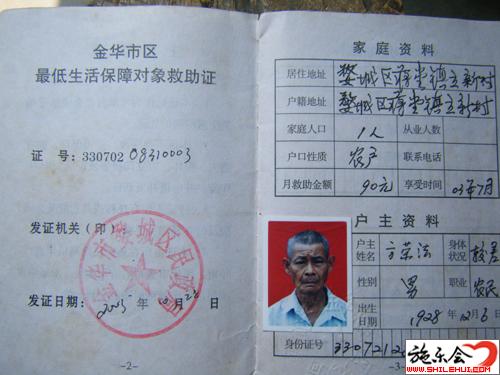 金华市区
最低生活保障对象救助证
证 号：330702 08310003
发证机关（印）
金华市婺城区民政局
发证日期：2005 年 10 月 28
-2-
家庭资料
居住地址 婺城区蒋堂镇立新村
户籍地址 婺城区蒋堂镇立新村
家庭人口 1人 从业人数
户口性质 农户 联系电话
月救助金额 90元 享受时间 03年7月
户主资料
户主姓名 方荣法 身体状况 较差
性别 男 职业 农民
出生日期 1928年12月6日
身份证号
-3-
施乐会
WWW.SHILEHUI.COM